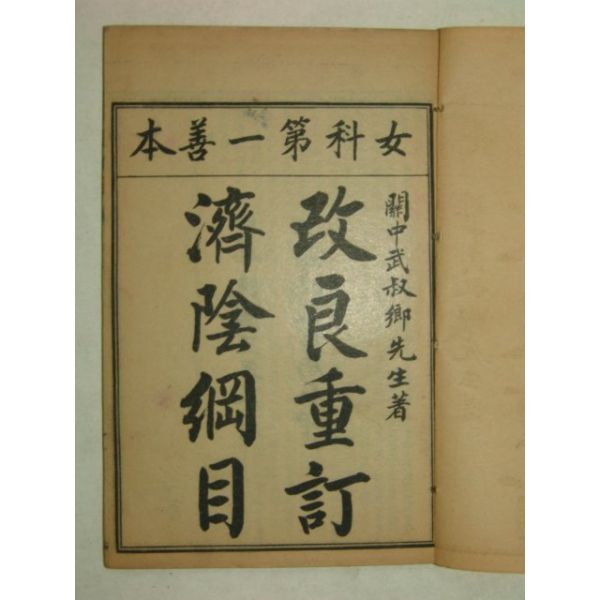 女科第一善本
關中武叔卿先生著
改良重訂
濟陰綱目